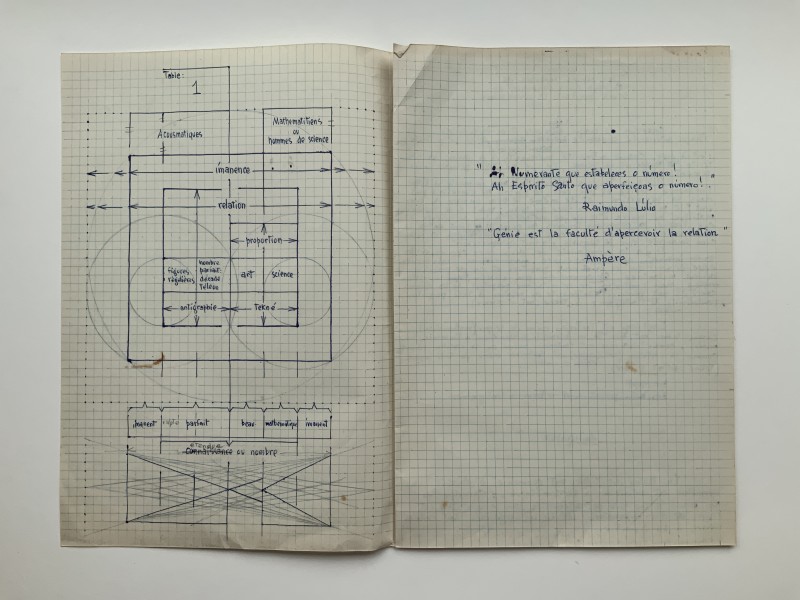 Table:
1
Acousmatiques
Mathematitiens
ou
hommes de science
imanence
relation
proportion
figures
régulières
nombre
parfait
décade
art
science
Tekné
imanent
parfait
beau
mathematique
imanent
Connaissance ou nombre
" Ai Numerante que estabeleces o número!
Ah Espírito Santo que aperfeiçoas o número! "
Raimundo Lúlio
"Génie est la faculté d'apercevoir la relation"
Ampère